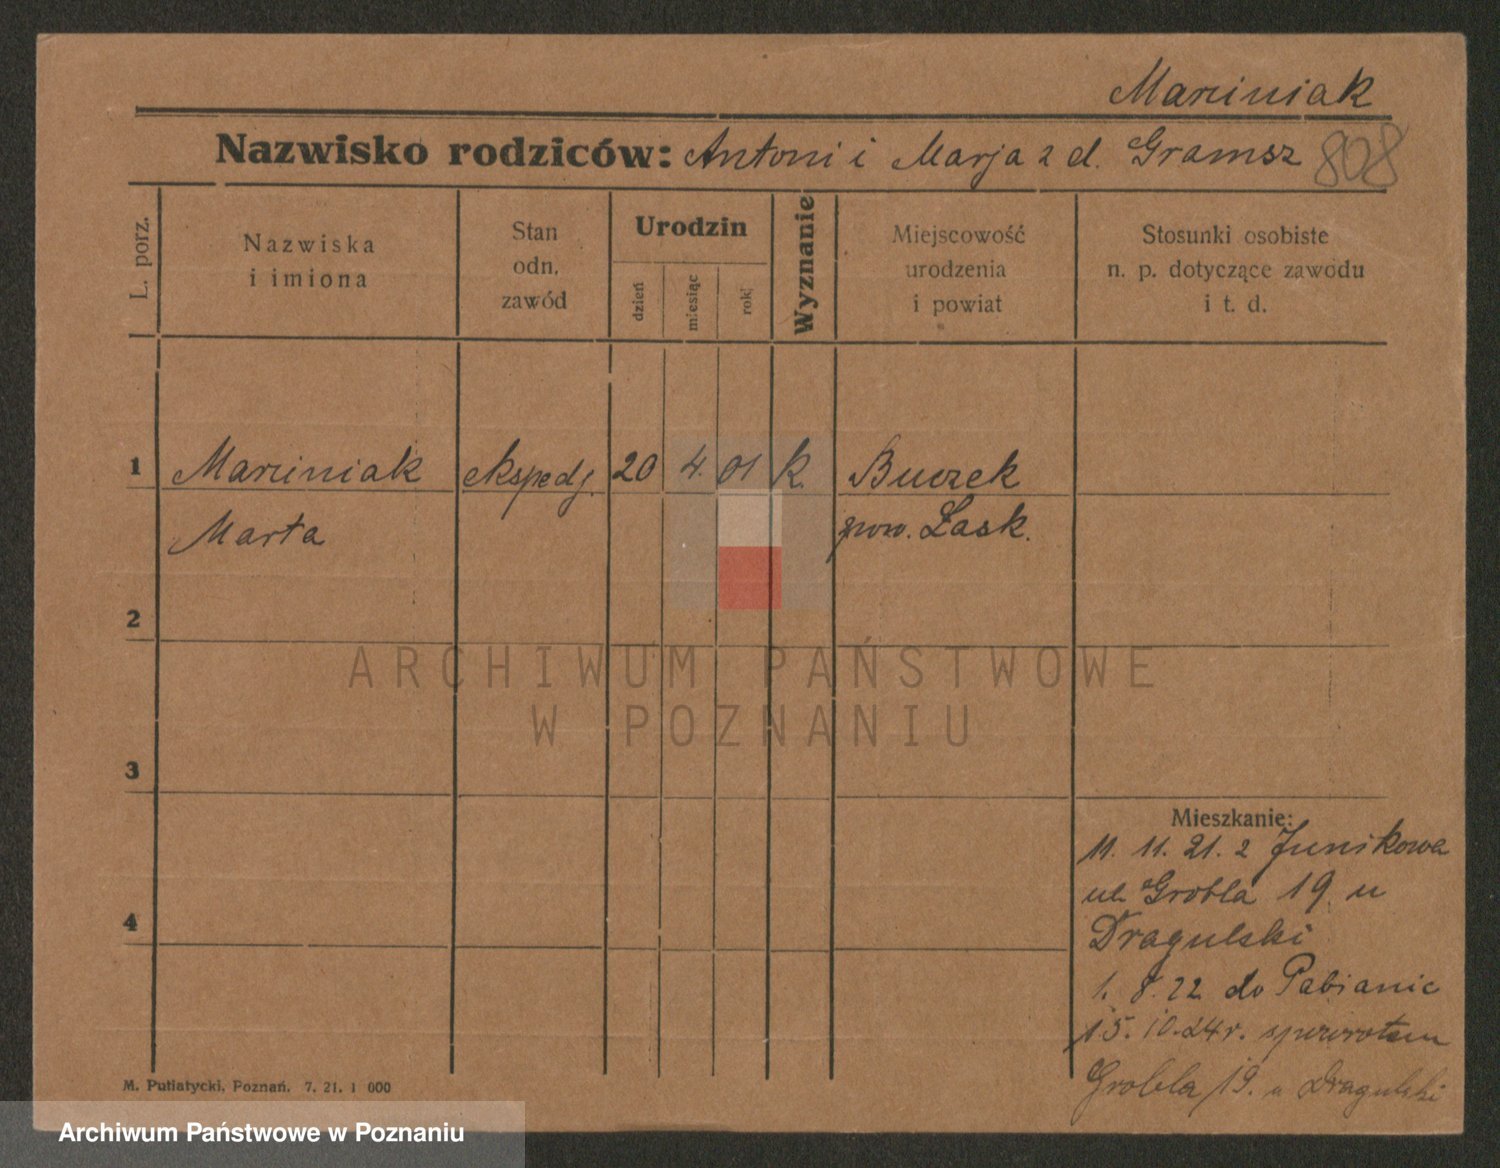 Marciniak
Nazwisko rodziców: Antoni i Marja z d. Gramsz 808
L. porz.
Nazwiska
i imiona
Stan
odn.
zawód
Urodzin
dzień
miesiąc
rok
Wyznanie
Miejscowość
urodzenia
i powiat
Stosunki osobiste
n. p. dotyczące zawodu
i t. d.
1 Marciniak ekspedj. 20 4. 01 k. Buczek
Marta pow. Łask.
2
ARCHIWUM PAŃSTWOWE
W POZNANIU
3
Mieszkanie:
11. 11. 21. z Junikowa
ul. Grobla 19 u
4
Dragulski
1. 8. 22. do Pabianic
15. 10. 24 r. spowrotem
Grobla 19. u Dragulski
M. Putiatycki, Poznań. 7. 21. 1 000
Archiwum Państwowe w Poznaniu